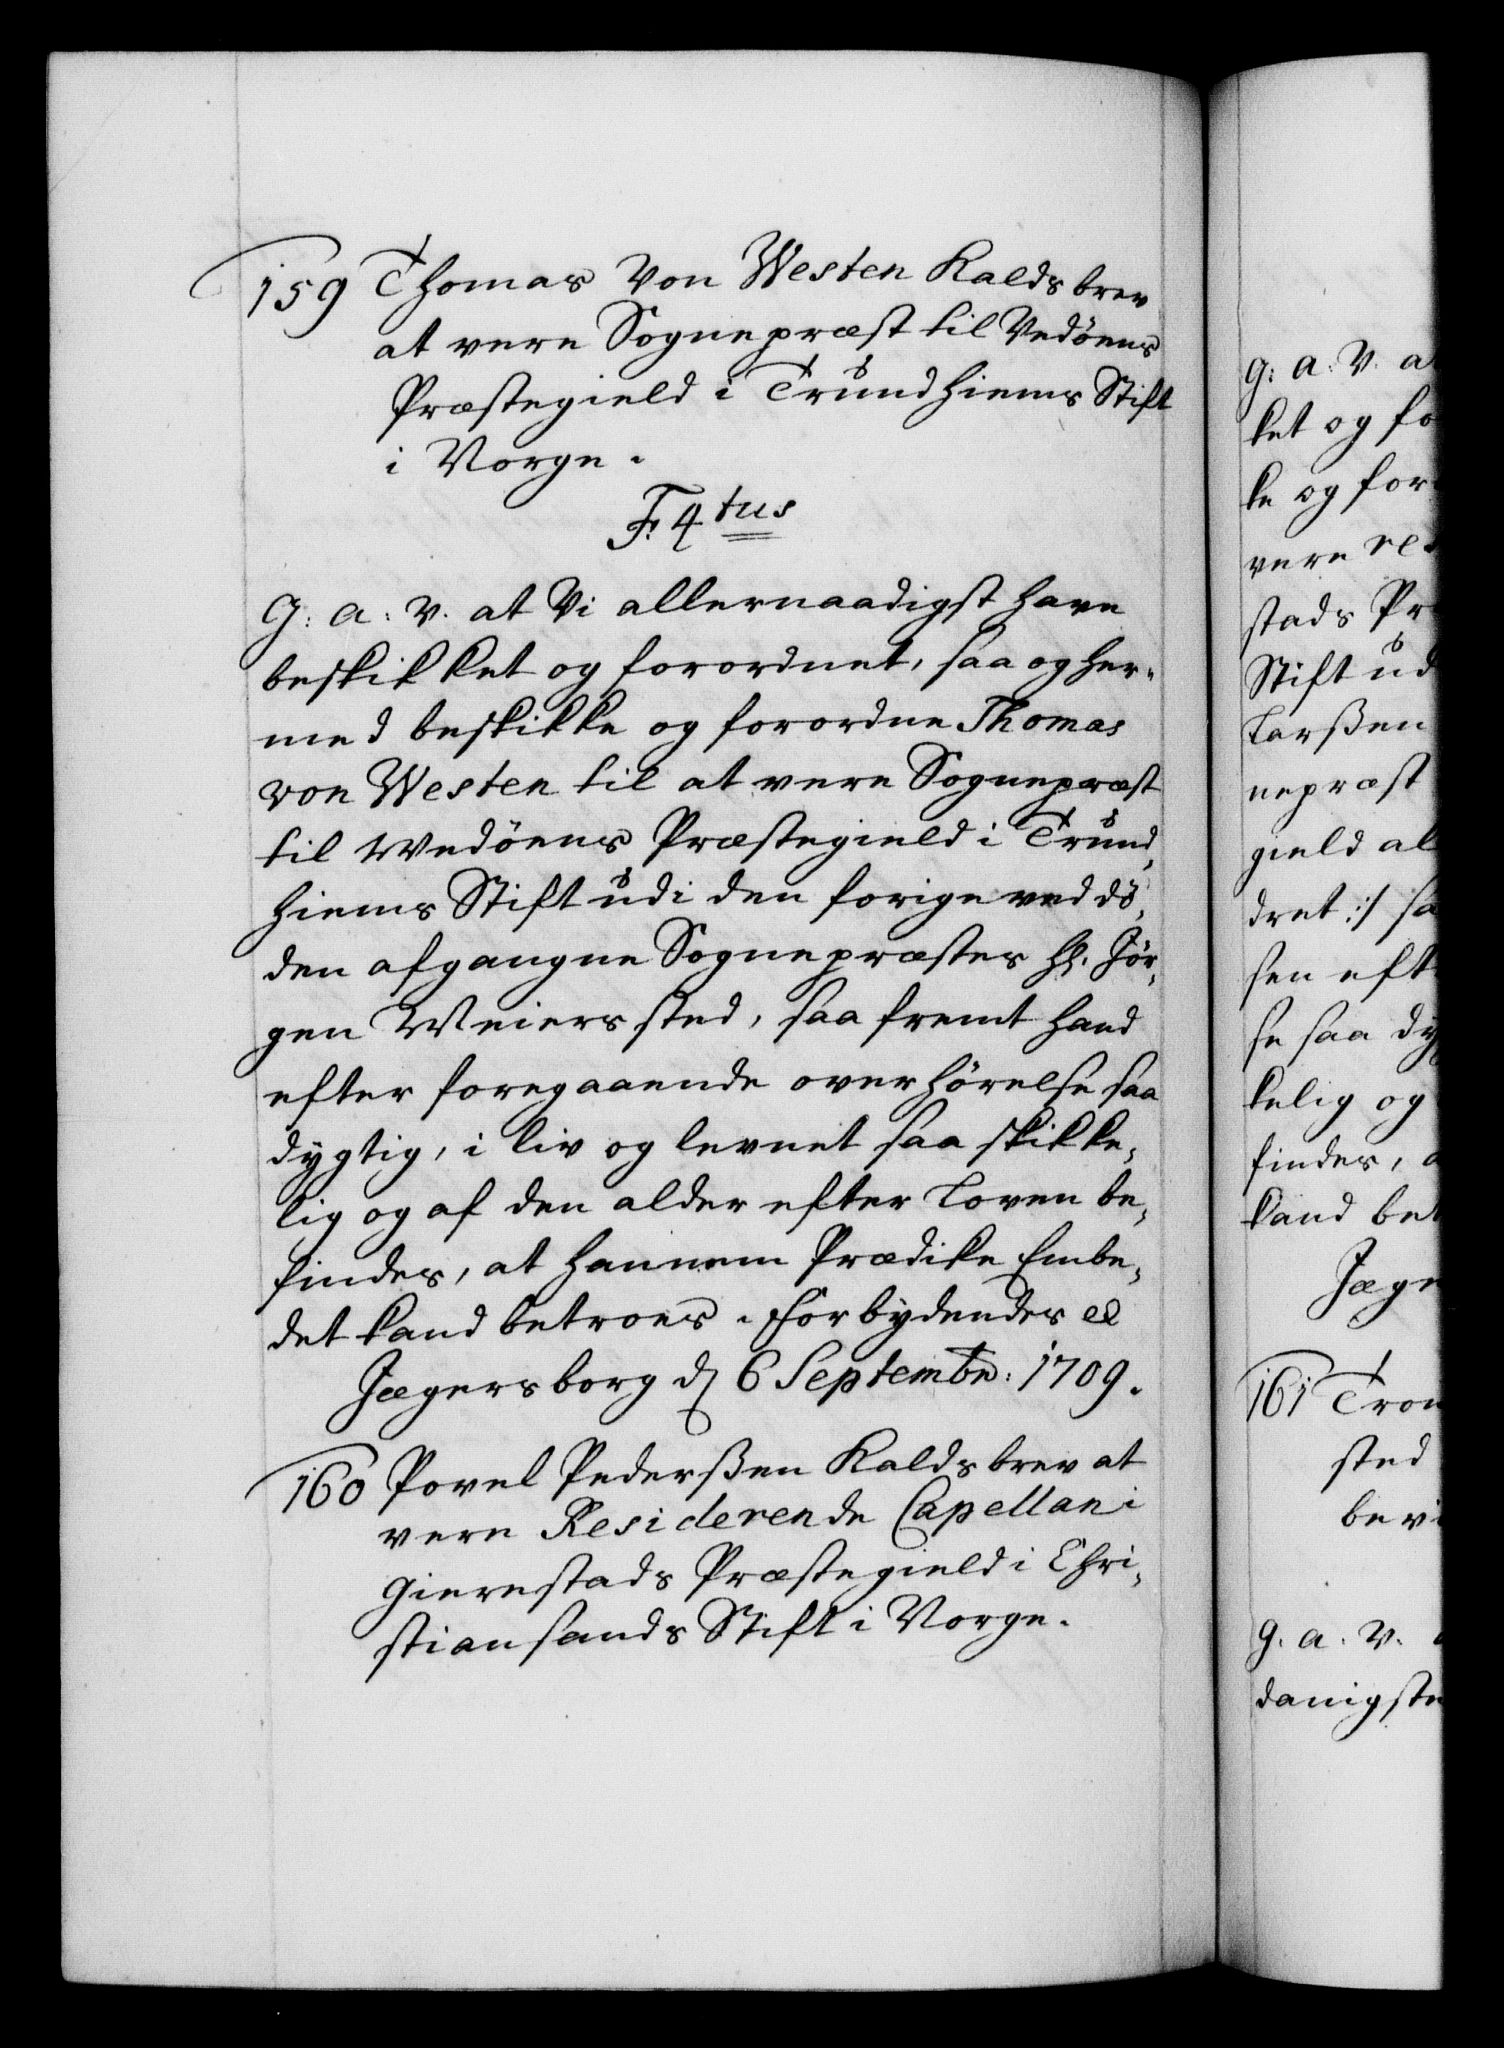 159 Thomas Von Westen Kalds brev
at vere Sognepræst til Vedöens
Præstegield i Trundhiems Stift
i Norge.
F. 4tus
G: A: V. at Vi allernaadigst have
beskikket og forordnet, saa og her-
med beskikke og forordne Thomas
von Westen til at vere Sognepræst
til Wedöens Præstegield i Trund-
hiems Stift udi den forige ved dö-
den afgangne Sognepræstes Hr. Jör-
gen Weiers sted, saa fremt hand
efter foregaaende overhörelse saa
dygtig, i liv og levnet saa skikke-
lig og af den alder efter Loven be-
findes, at hannem Prædike Embe-
det kand betroes. Forbydendes etc
Jægersborg d 6 Septembr: 1709.
160 Povel Pederßen Kalds brev at
vere Residerende Capellan i
Gierestads Præstegield i Chri-
stiansands Stift i Norge.
G: A: V. a
ket og fo
ke og for
vere re
stads Pr
Stift ud
Larßen
nepræst
gield al
dret :/ sa
sen eft
se saa dy
kelig og
findes, a
kand bet
Jæge
161 Tron
sted
bevi
G. A. V.
danigste